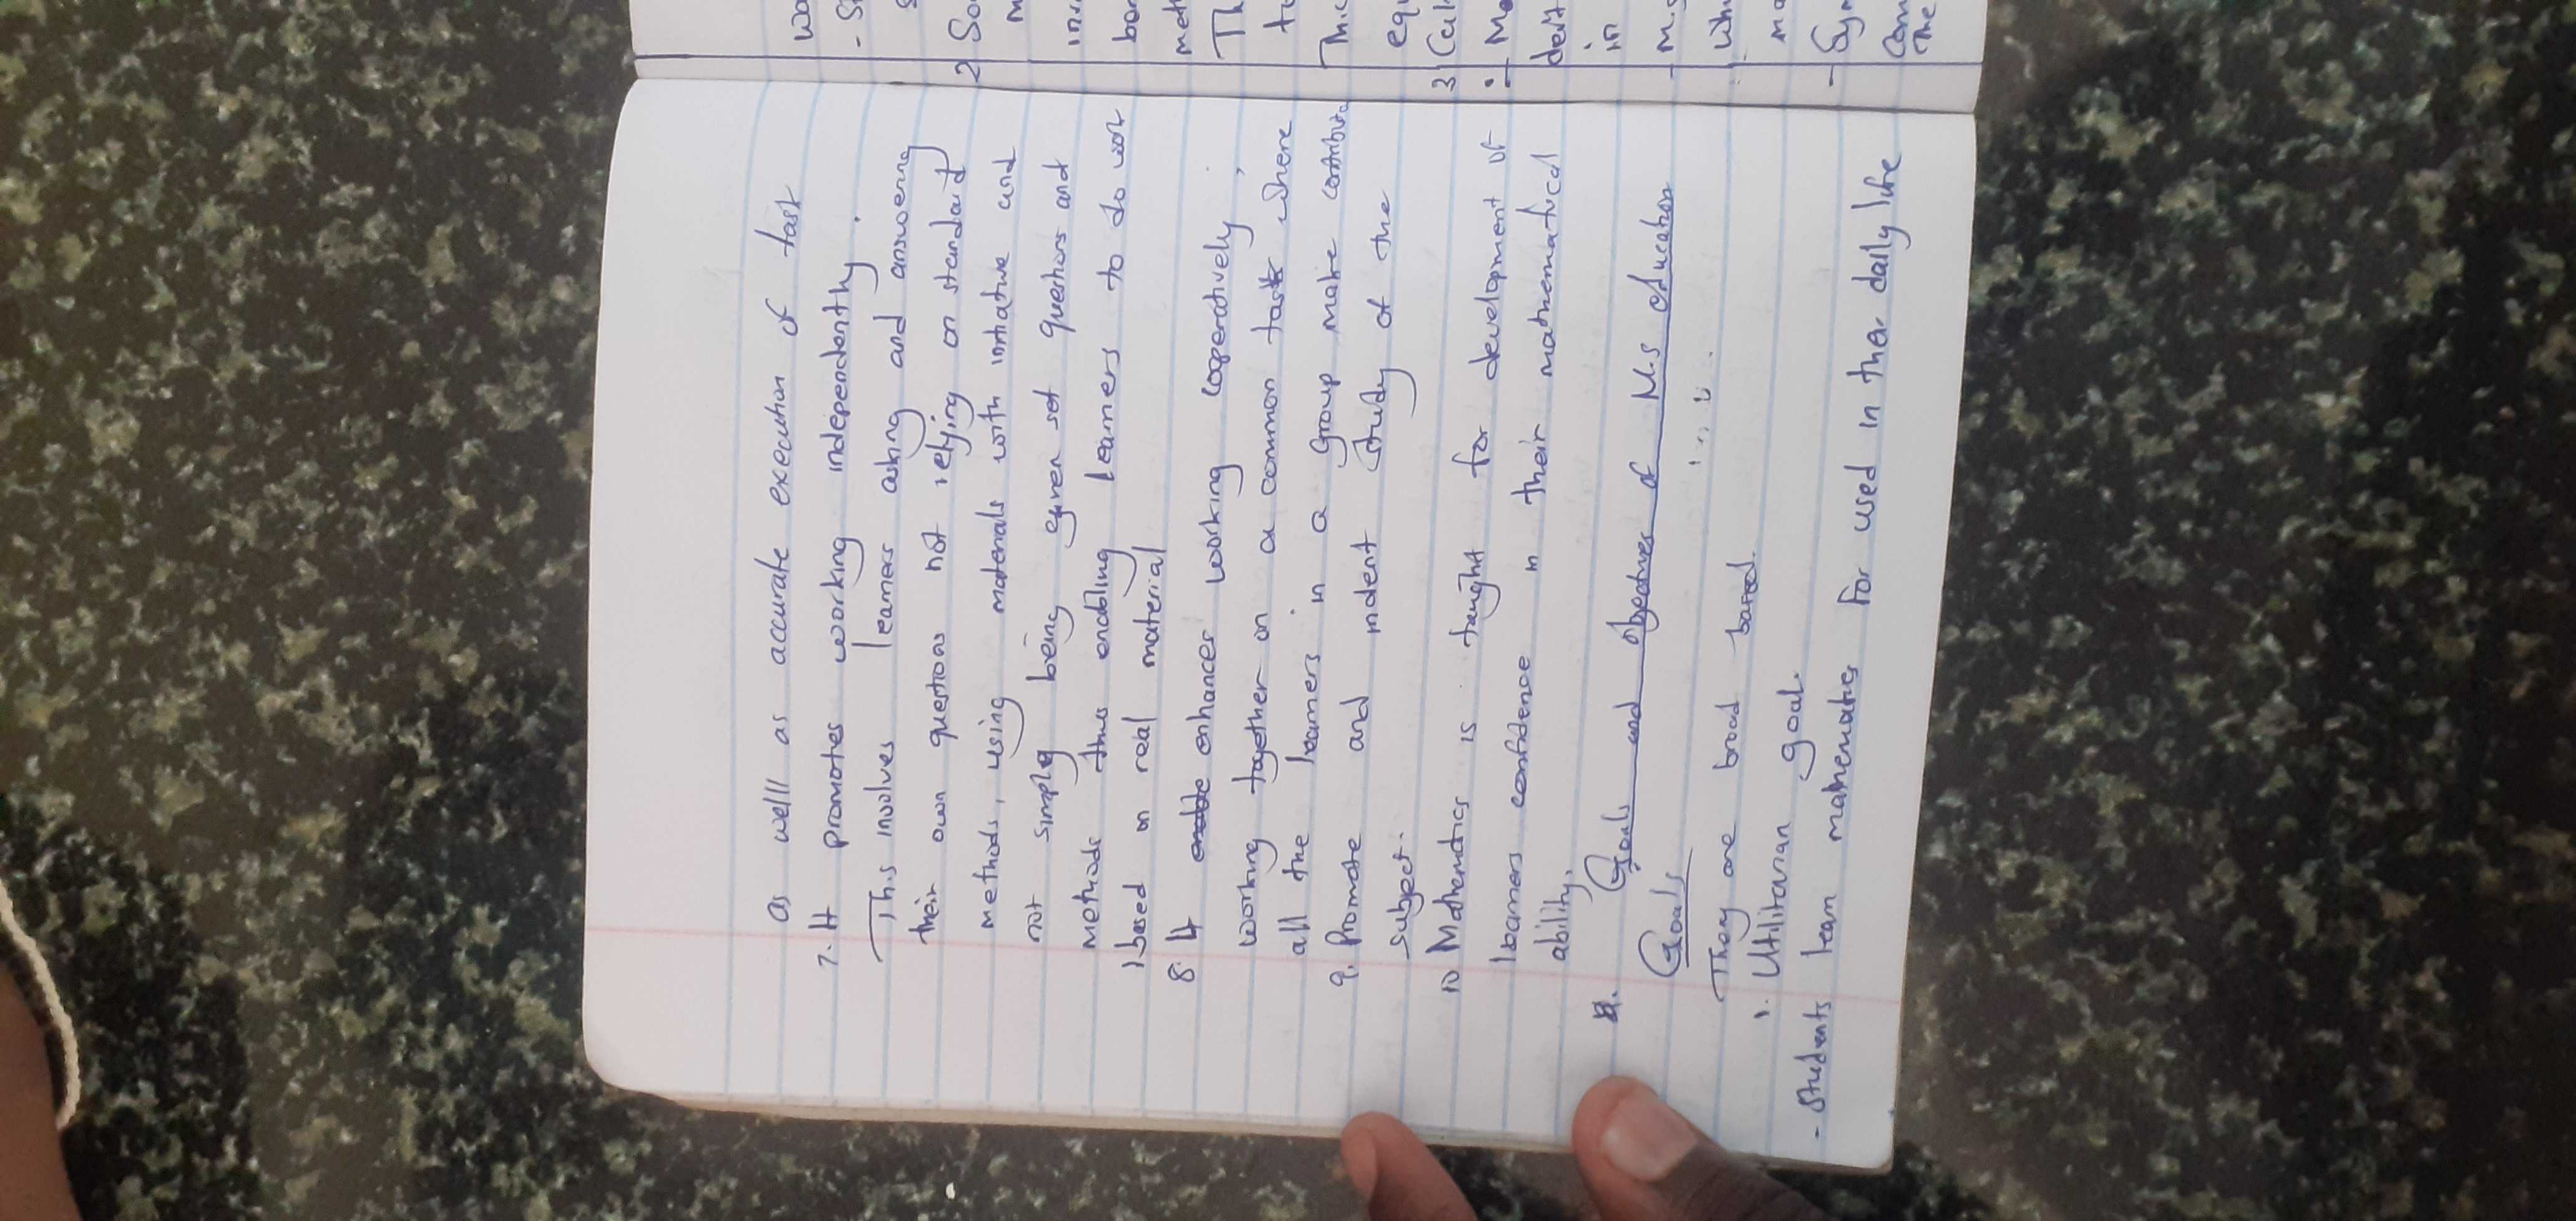 as welll as accurate execution of task
7. It promotes working independently.
This involves learners asking and answering
their own questions not relying on standard
methods, using materials with initiative and
not simply being given set questions and
methods thus enabling learners to do work
based on real material
8. It enhances working cooperatively,
working together on a common task where
all the learners in a group make contribu
9. Promote and indent study of the
subject.
10 Mathematics is taught for development of
learners confidence in their mathematical
ability.
Goals and objectives of M.S education
Goals
They are broad based.
1. Utilitarian goal.
- Students learn mathematics for used in their daily life
wa
- St
2 Soc
m
inv
bar
met
Th
tu
This
equ
3 Cul
:- Ma
defi
in
- M.s
whi
ma
- Sym
Com
The